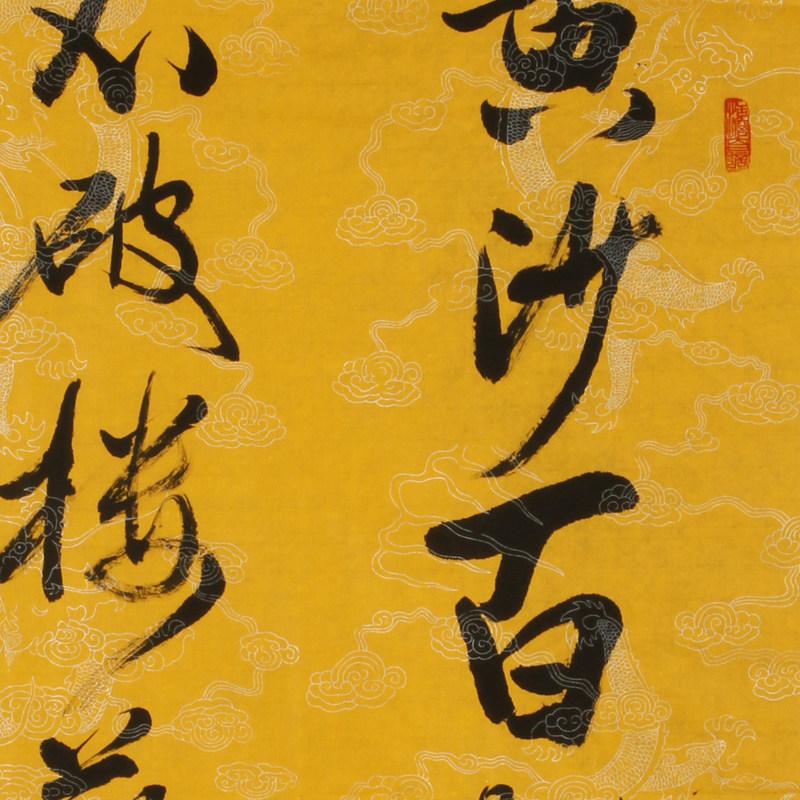 黄沙百
不破楼